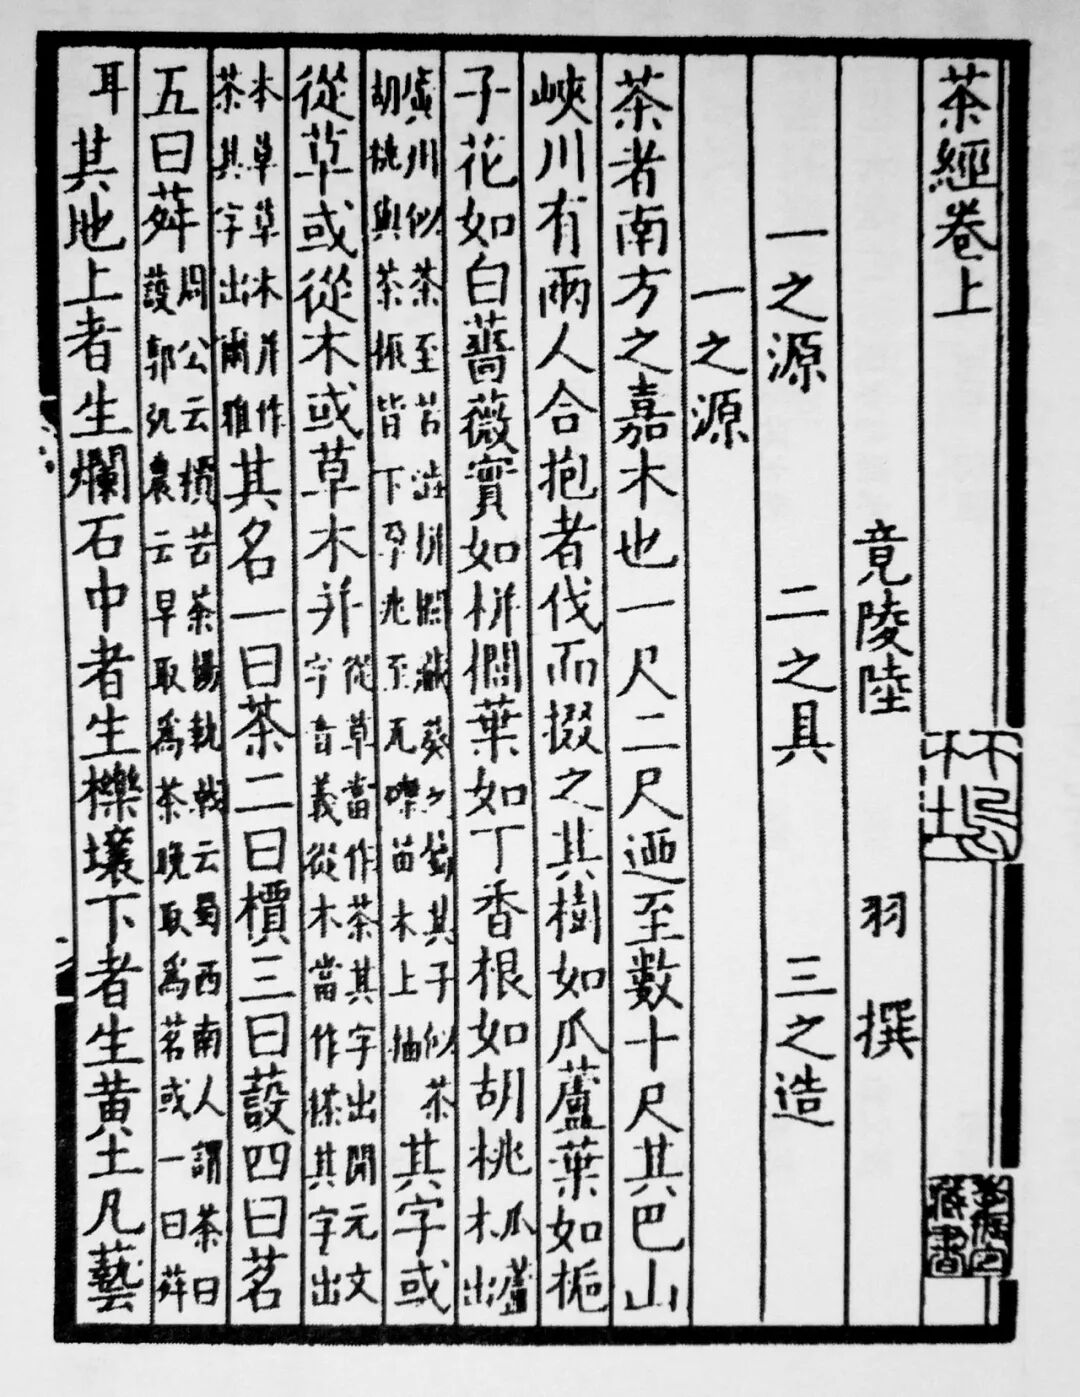 茶經卷上
竟陵陸 羽 撰
一之源 二之具 三之造
一之源
茶者南方之嘉木也一尺二尺迺至數十尺其巴山
峽川有兩人合抱者伐而掇之其樹如瓜蘆葉如梔
子花如白薔薇實如栟櫚葉如丁香根如胡桃瓜蘆木出
廣川似茶至苦澁栟櫚葵其子似茶
胡桃與茶根皆下孕兆至瓦礫苗木上抽其字或
從草或從木或草木并從草當作茶其字出開元文
字音義從木當作搽其字出
本草草木并作
茶其字出爾雅其名一曰茶二曰檟三曰蔎四曰茗
五曰荈周公云檟苦茶楊執戟云蜀西南人謂茶曰
蔎郭弘農云早取爲茶晚取爲茗或一曰荈
耳其地上者生爛石中者生櫟壤下者生黃土凡藝